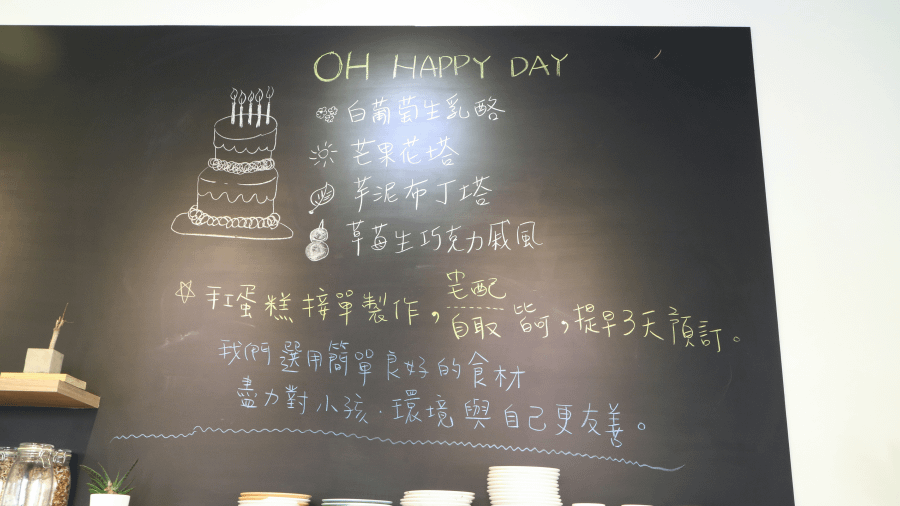 OH HAPPY DAY
白葡萄生乳酪
芒果花塔
芋泥布丁塔
草莓生巧克力戚風
手工蛋糕接單製作,宅配自取皆可,提早3天預訂。
我們選用簡單良好的食材
盡力對小孩.環境與自己更友善。